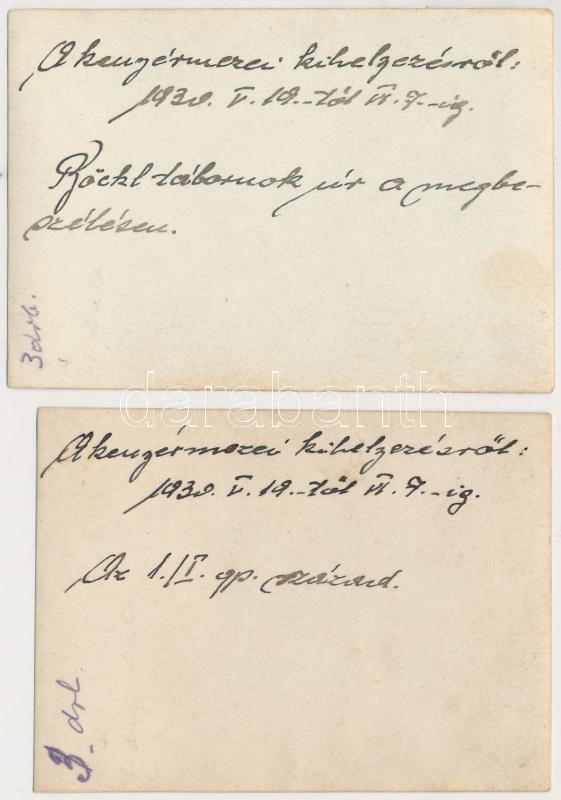 A kenyérmezei kihelyezésről:
1930. V. 19.-től VI. 7.-ig.
Böckl tábornok úr a megbe-
szélésen.
3 drb.
darabanth
A kenyérmezei kihelyezésről:
1930. V. 19.-től VI. 7.-ig.
Az 1./I. gp. század.
3. drb.